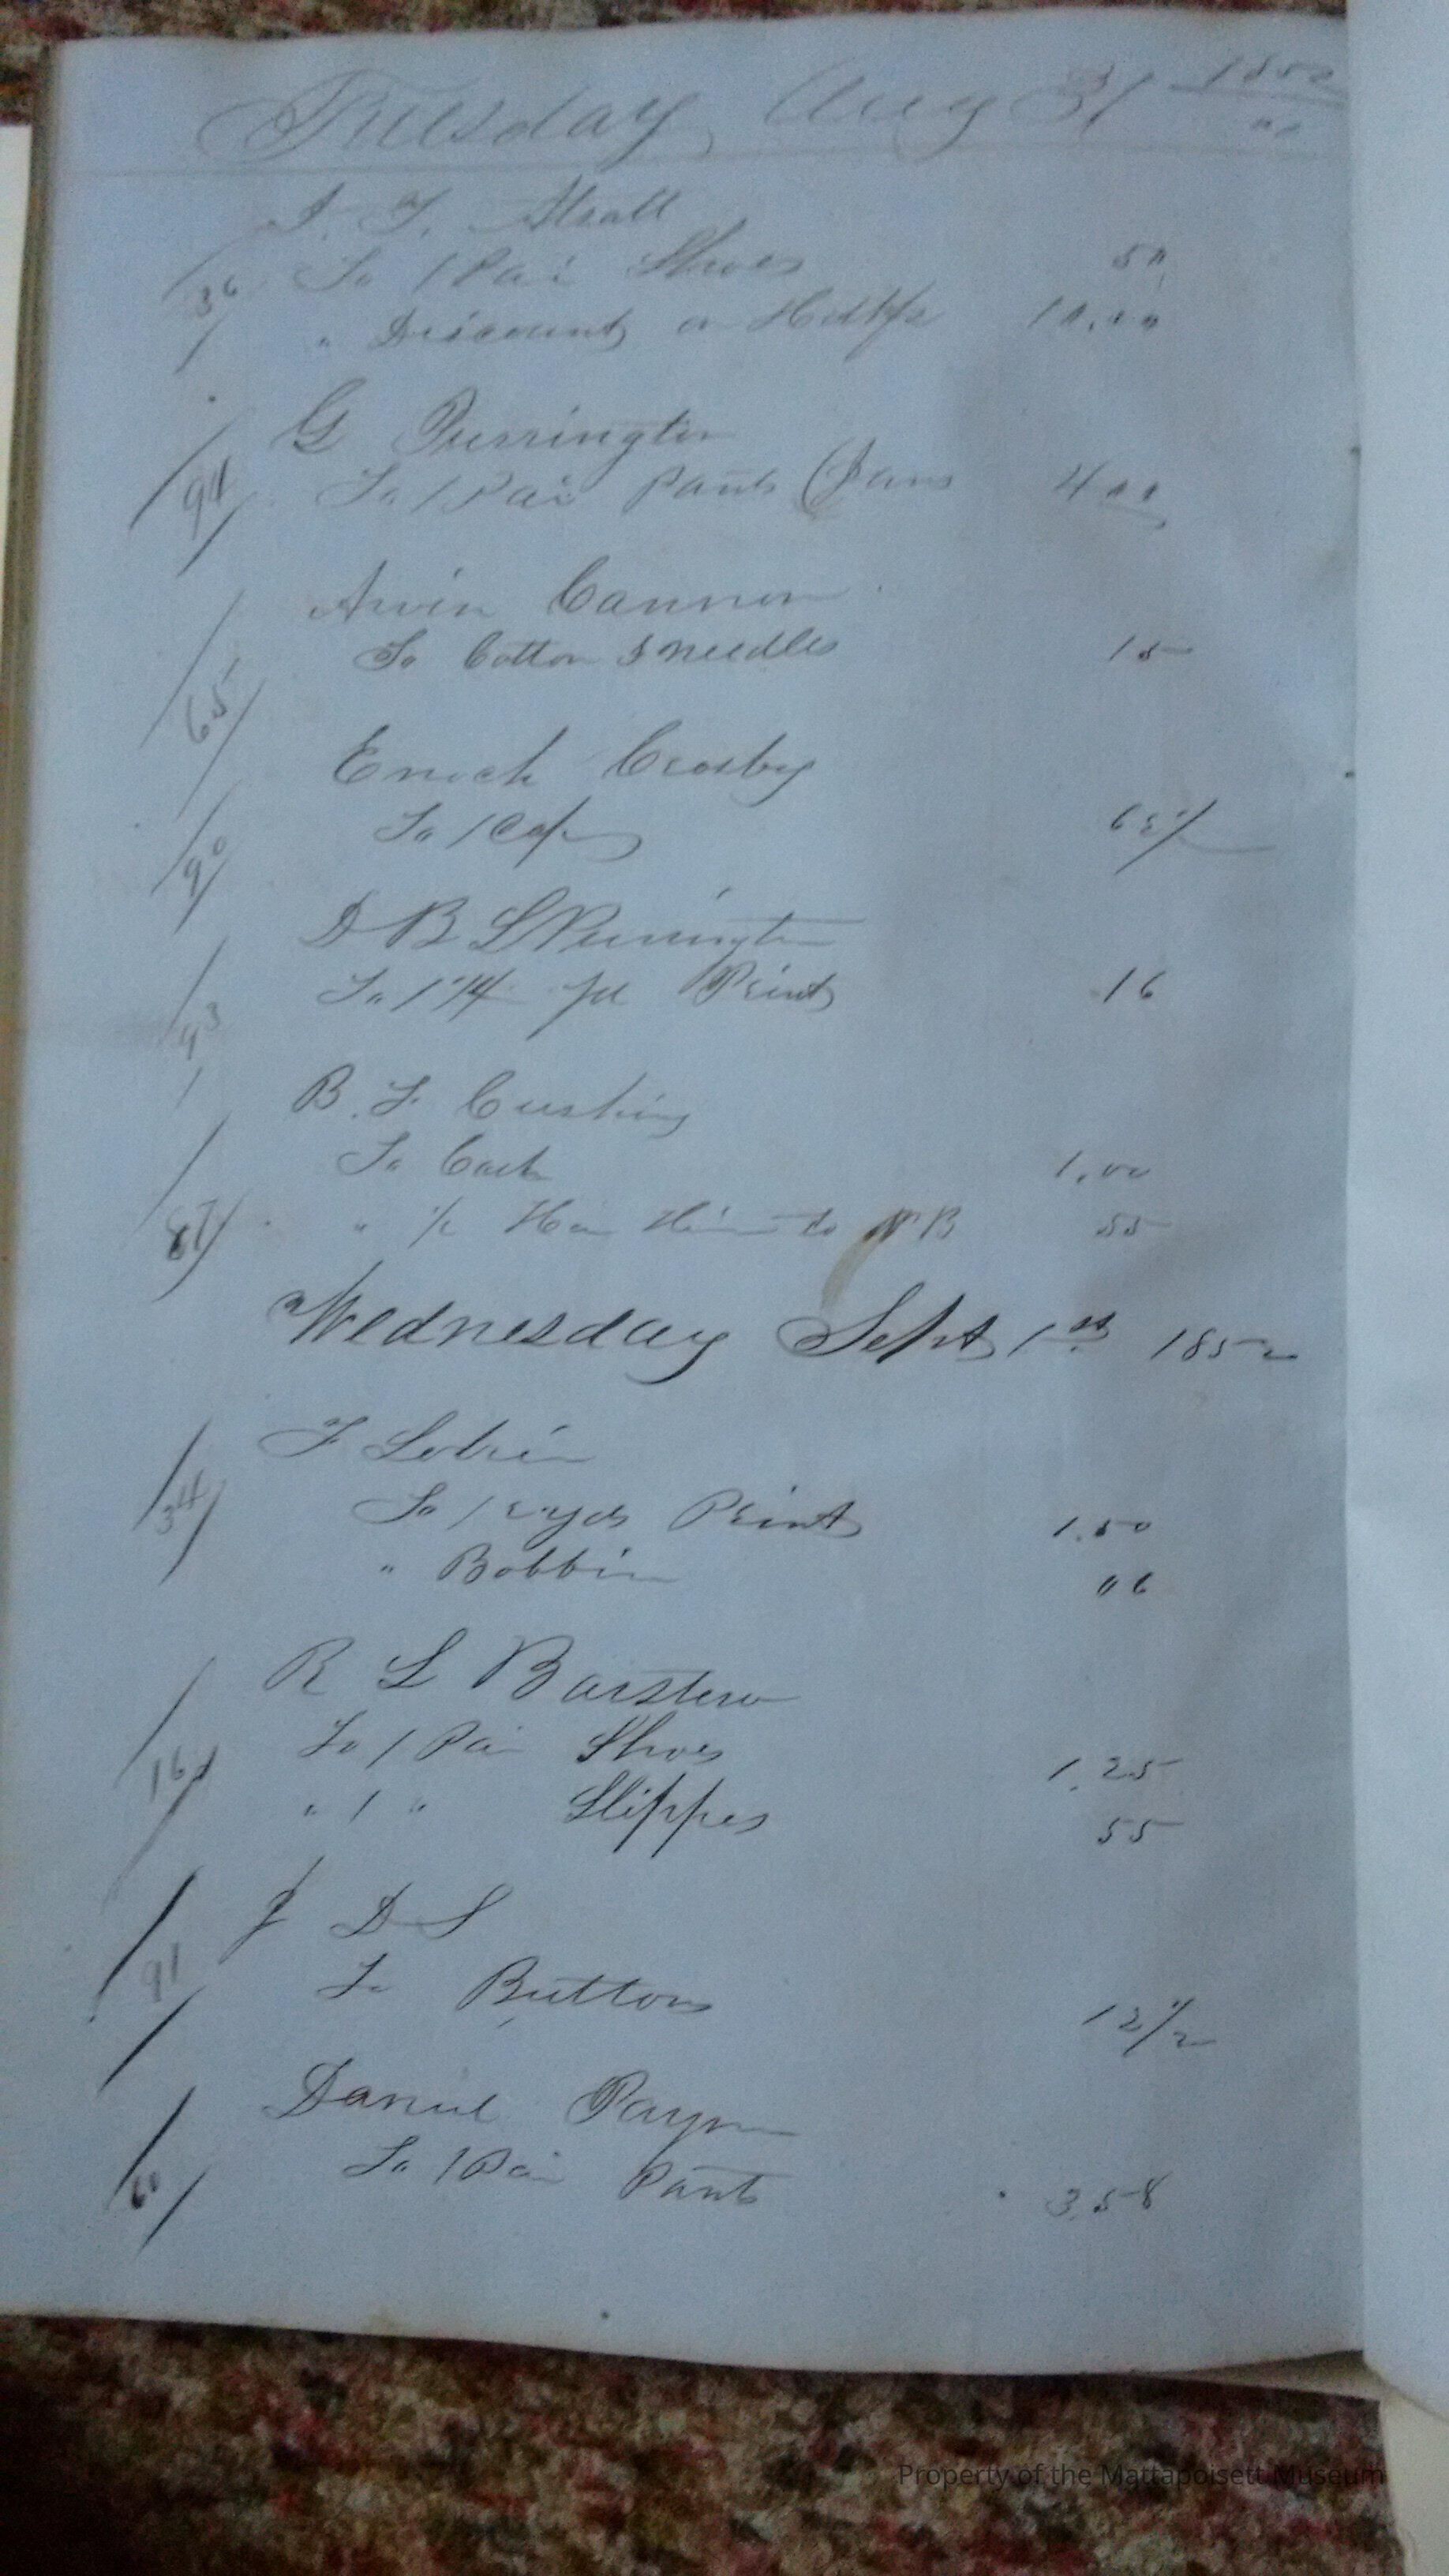 Tuesday, Aug 31 1852
J. T. Atsatt
36 To 1 Pai Shoes 50
" Discount on 10.00
G Purrington
94 To 1 Pai Pants (Jans 4 00
Arvin Cannon
65 To Cotton & needles 15
Enoch Crosby
90 To 1 Cap 62 1/2
D B L Purrington
93 To 1 3/4 yd Print 16
B. F. Cushing
To Cash 1.00
87 " 1/2 Him to N B 55
Wednesday Sept 1st 1852
F
34 To 12 yds Print 1.50
" Bobbin 06
R L Barstow
16 To 1 Pai Shoes 1.25
" 1 " Slippes 55
J D S
91 To Buttons 12 1/2
Daniel Payn
60 To 1 Pai Pants 3.58
Property of the Mattapoisett Museum